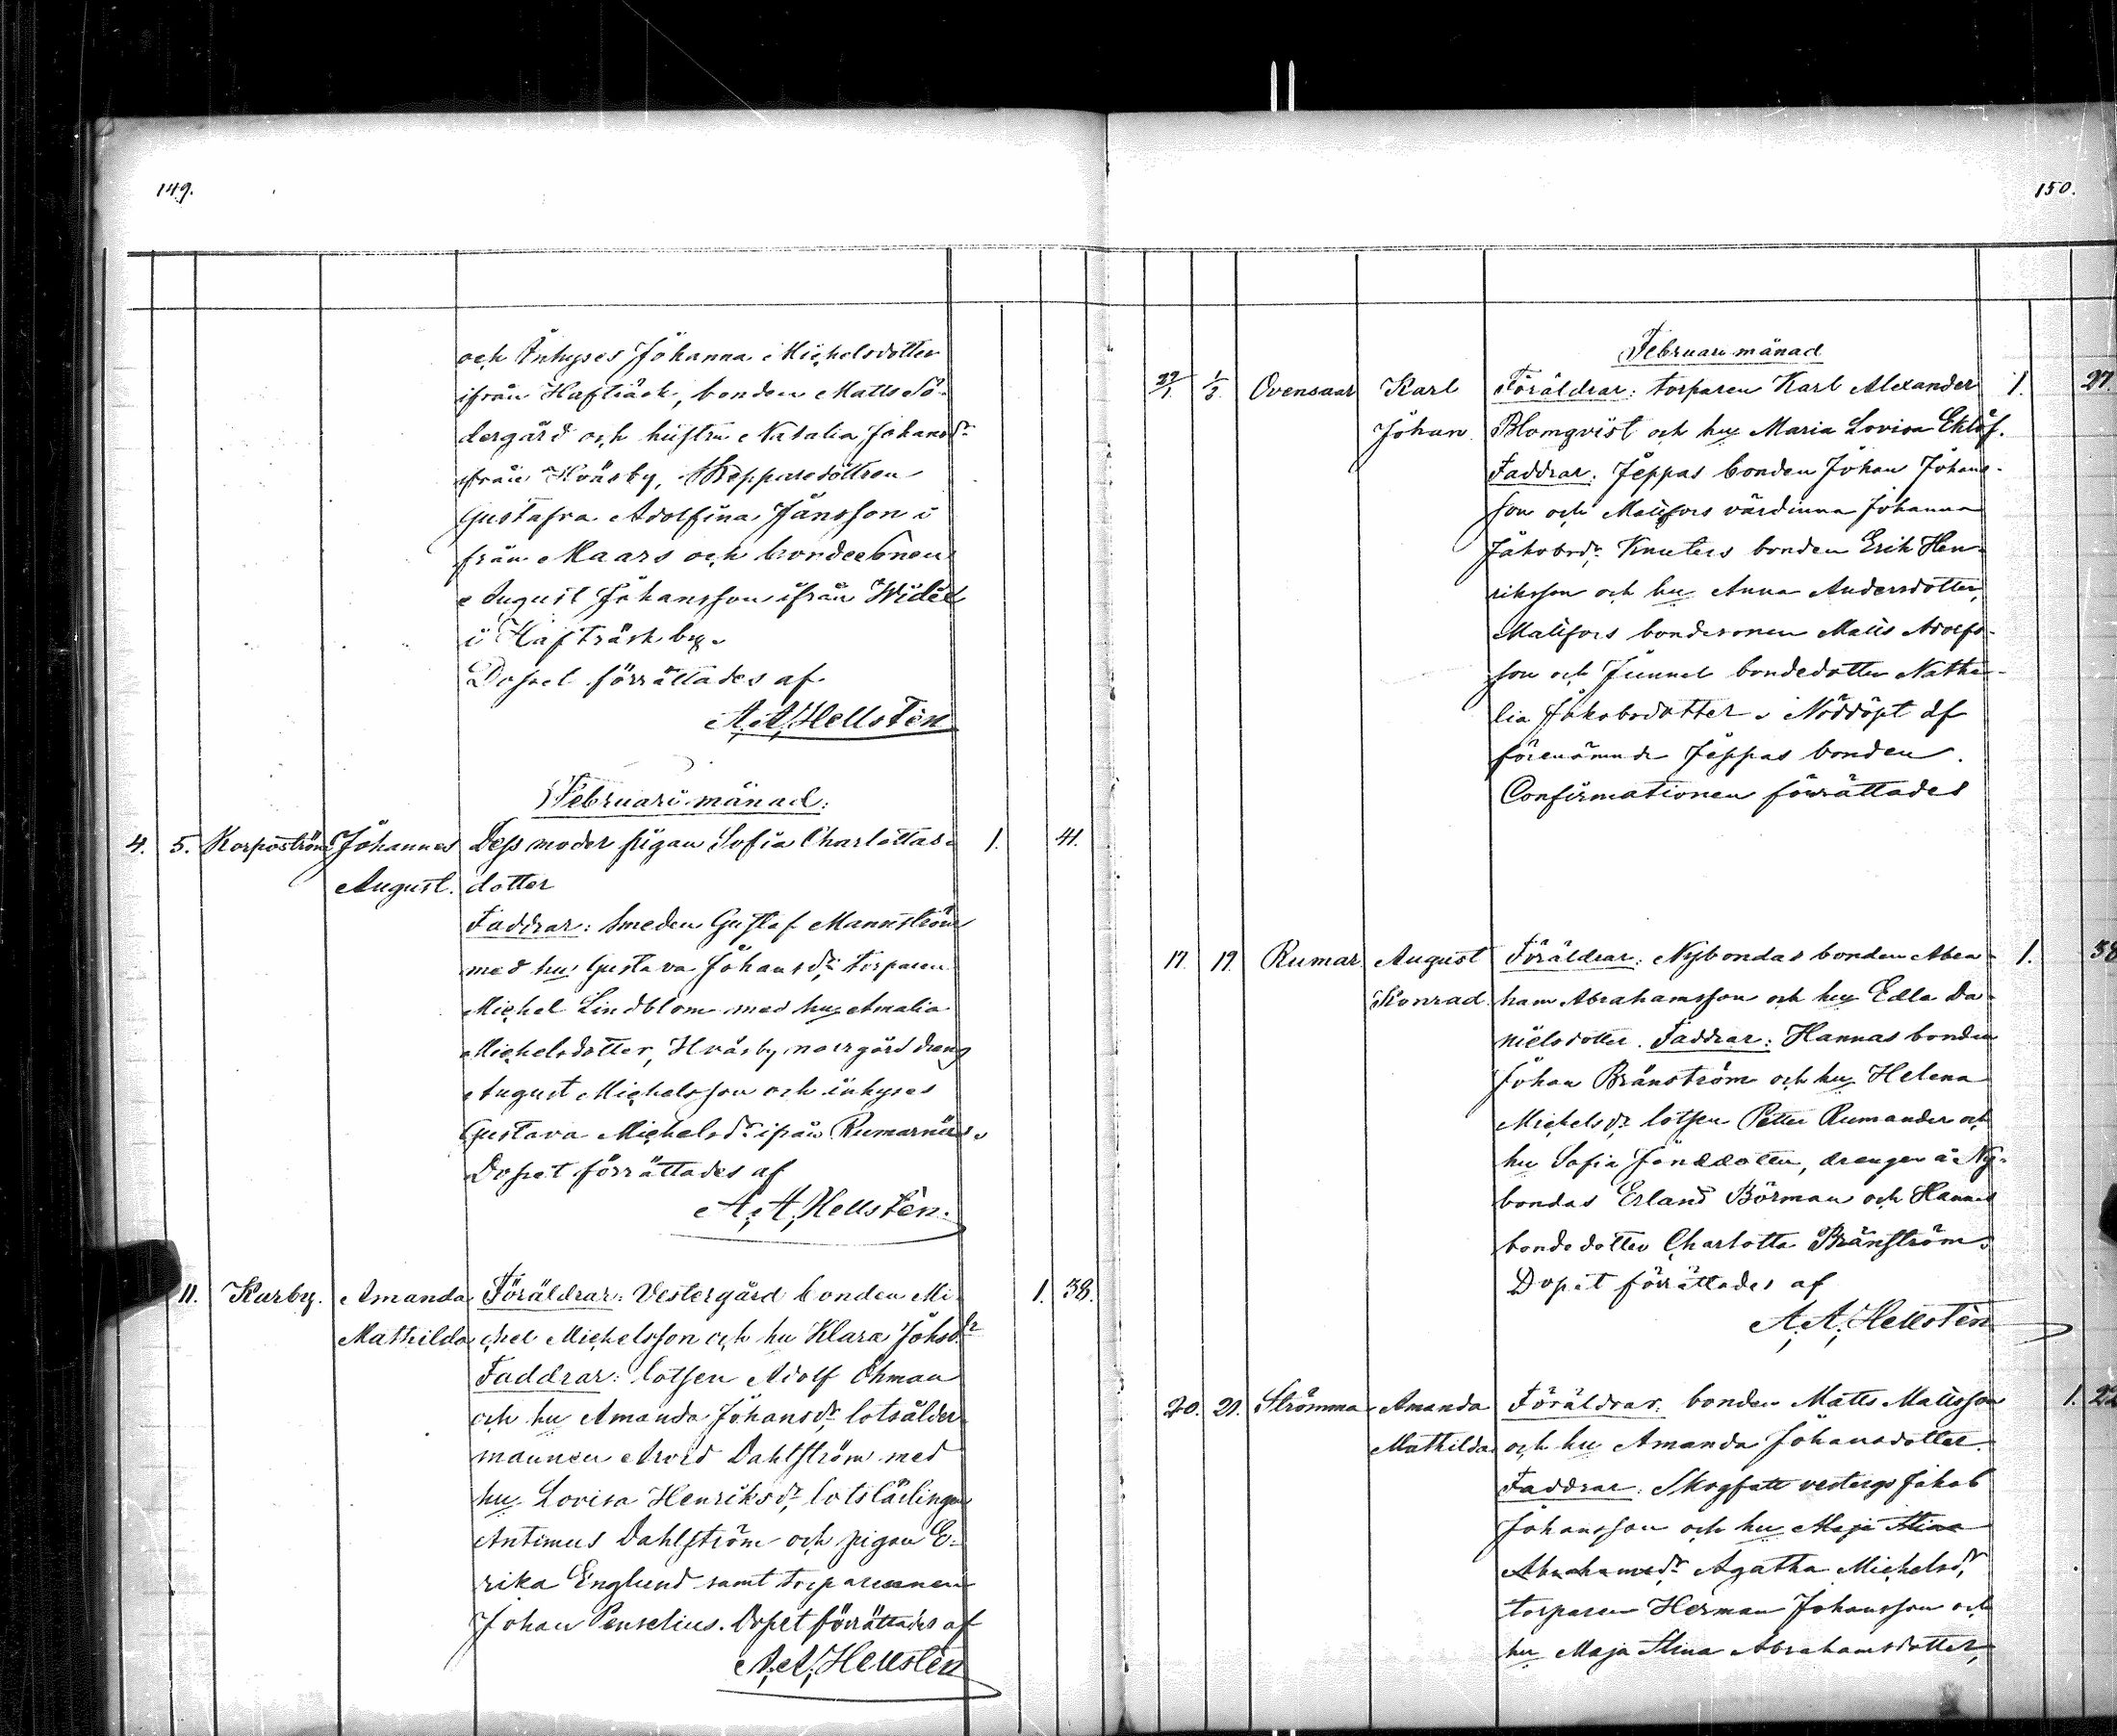 149.
och Inhyses Johanna Michelsdotter
ifrån Hafträsk, bonden Matts Sö-
dergård och hustru Natalia Johansdr
från Hväsby, Skepparedottren
Gustafva Adolfina Jansson i
från Maars och bondesonen
August Johansson ifrån Widet
i Hafträsk by.
Dopet förrättades af
A. A. Hellstèn
Februari månad:
4. 5. Korpoström Johannes Dess moder pigan Sofia Charlottas- 1. 41.
August. dotter
Faddrar: Smeden Gustaf Mannström
med hu Gustava Johansdr torparen
Michel Lindblom med hu Amalia
Michelsdotter, Hväsby norrgård dräng
August Michelsson och inhyses
Gustava Michelsdr ifrån Rumarnäs.
Dopet förrättades af
A. A. Hellstèn.
11. Karby. Amanda Föräldrar: Vestergård bonden Mi- 1. 38.
Mathilda chel Michelsson och hu Klara Johsdr
Faddrar: lotsen Adolf Öhman
och hu Amanda Johansdr lotsålder
mannen Arvid Dahlström med
hu Lovisa Henriksdr, lotslärlingen
Antimus Dahlström och pigan E-
rika Englund samt torparesonen
Johan Penselius. Dopet förrättades af
A. A. Hellstèn
150.
Februari månad
1/3 Ovensaar Karl Föräldrar: torparen Karl Alexander 1. 27.
Johan Blomqvist och hu Maria Lovisa Eklöf.
Faddrar: Jeppas bonden Johan Johans-
son och Matsfors värdinna Johanna
Jakobsdr Knuters bonden Erik Hen-
riksson och hu Anna Andersdotter,
Matsfors bondesonen Matts Adolfs-
son och Junnel bondedotter Natha-
lia Jakobsdotter. Nöddöpt af
förenämnde Jeppas bonden.
Confirmationen förrättades
17. 19. Rumar August Föräldrar: Nybondas bonden Abra- 1. 38
Konrad ham Abrahamsson och hu Edla Da-
nielsdotter. Faddrar: Hannas bonden
Johan Bränström och hu Helena
Michelsdr lotsen Petter Rumander och
hu Sofia Jansdotter, drengen å Ny-
bondas Erland Börman och Hannas
bondedotter Charlotta Bränström.
Dopet förrättades af
A. A. Hellstèn
20. 21. Strömma Amanda Föräldrar: bonden Matts Mattsson 1. 22
Mathilda och hu Amanda Johansdotter.
Faddrar: Skogfatt vesterg. Jakob
Johansson och hu Maja Stina
Abrahamsdr Agatha Michelsdr,
torparen Herman Johansson och
hu Maja Stina Abrahamsdotter,